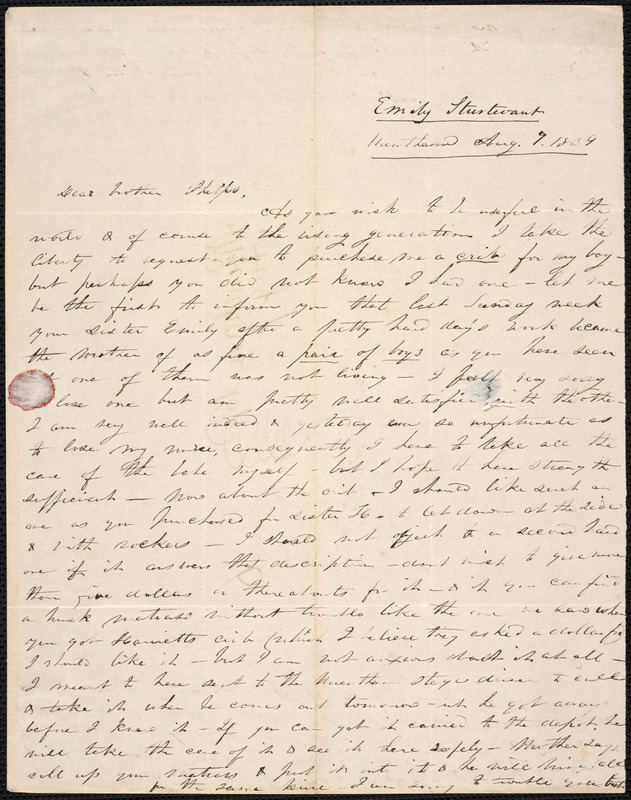 Emily Sturtevant
Aug. 9. 1839
Dear brother Phelps,
As you wish to be useful in the
world & of course to the rising generation I take the
liberty to request you to purchase me a crib for my boy -
but perhaps you did not know I had one - let me
be the first to inform you that last Sunday week
your sister Emily after a pretty hard day's work became
the mother of as fine a pair of boys as you have seen
one of them was not living - I feel very sorry
lose one but am pretty well satisfied with the other -
I am very well indeed & yesterday was so unfortunate as
to lose my nurse, consequently I have to take all the
care of the babe myself - but I hope to have strength
sufficient - Now about the crib - I should like such an
one as you purchased for sister H- to let down at the side
& with rockers - I should not object to a second hand
one if it answers that description - dont wish to give more
than five dollars or thereabouts for it - & if you can find
a husk matrass without trouble like the one we saw when
you got Harrietts crib (which I believe they asked a dollar for)
I should like it - but I am not anxious about it at all -
I meant to have sent to the stage driver to call
& take it when he comes out tomorrow - but he got away
before I knew it - If you can get it carried to the depot, he
will take the care of it & see it here safely - Mother says
roll up your matrass & put it in it & he will bring all
for the same price - I am sorry to trouble you but